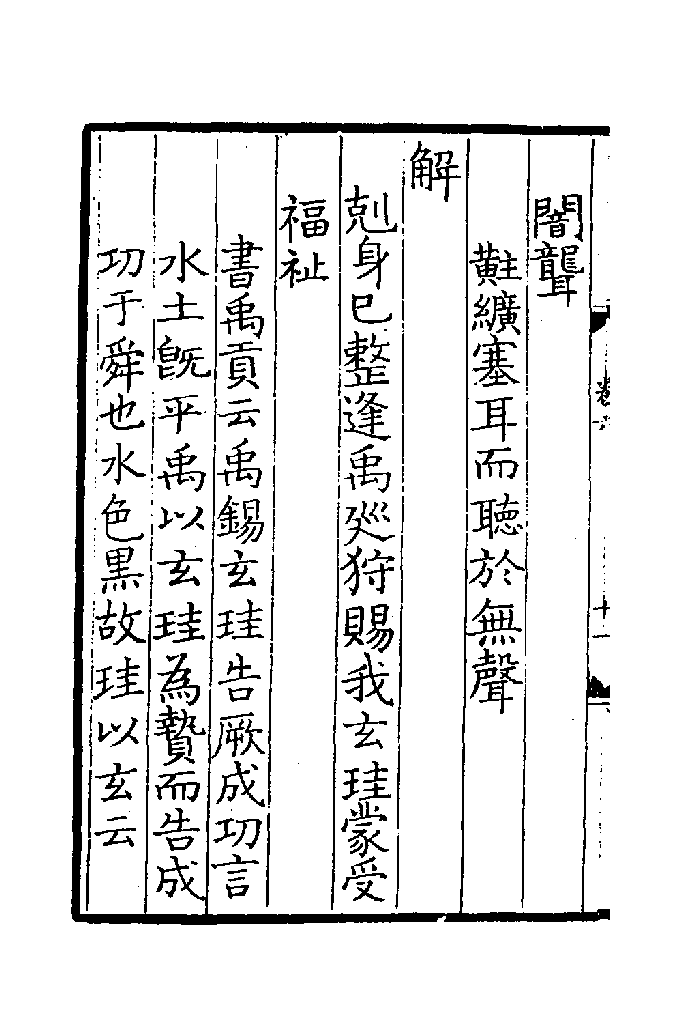 闇聾
黈纊塞耳而聴於無聲
解
剋身已整逢禹廵狩賜我玄珪蒙受
福祉
書禹貢云禹錫玄珪告厥成功言
水土既平禹以玄珪為贄而告成
功于舜也水色黒故珪以玄云